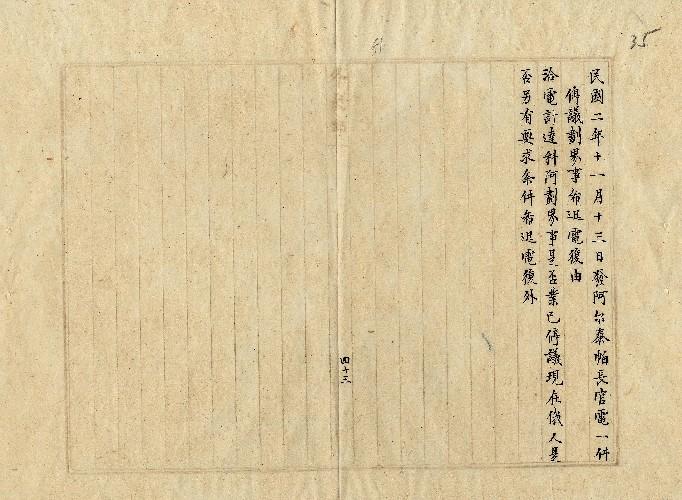 35
民國二年十一月十三日發阿尔泰帕長官電一件
停議劃界事希迅電復由
洽電計達科阿劃界事是否業已停議現在俄人是
否另有要求条件希迅電復外
四十三